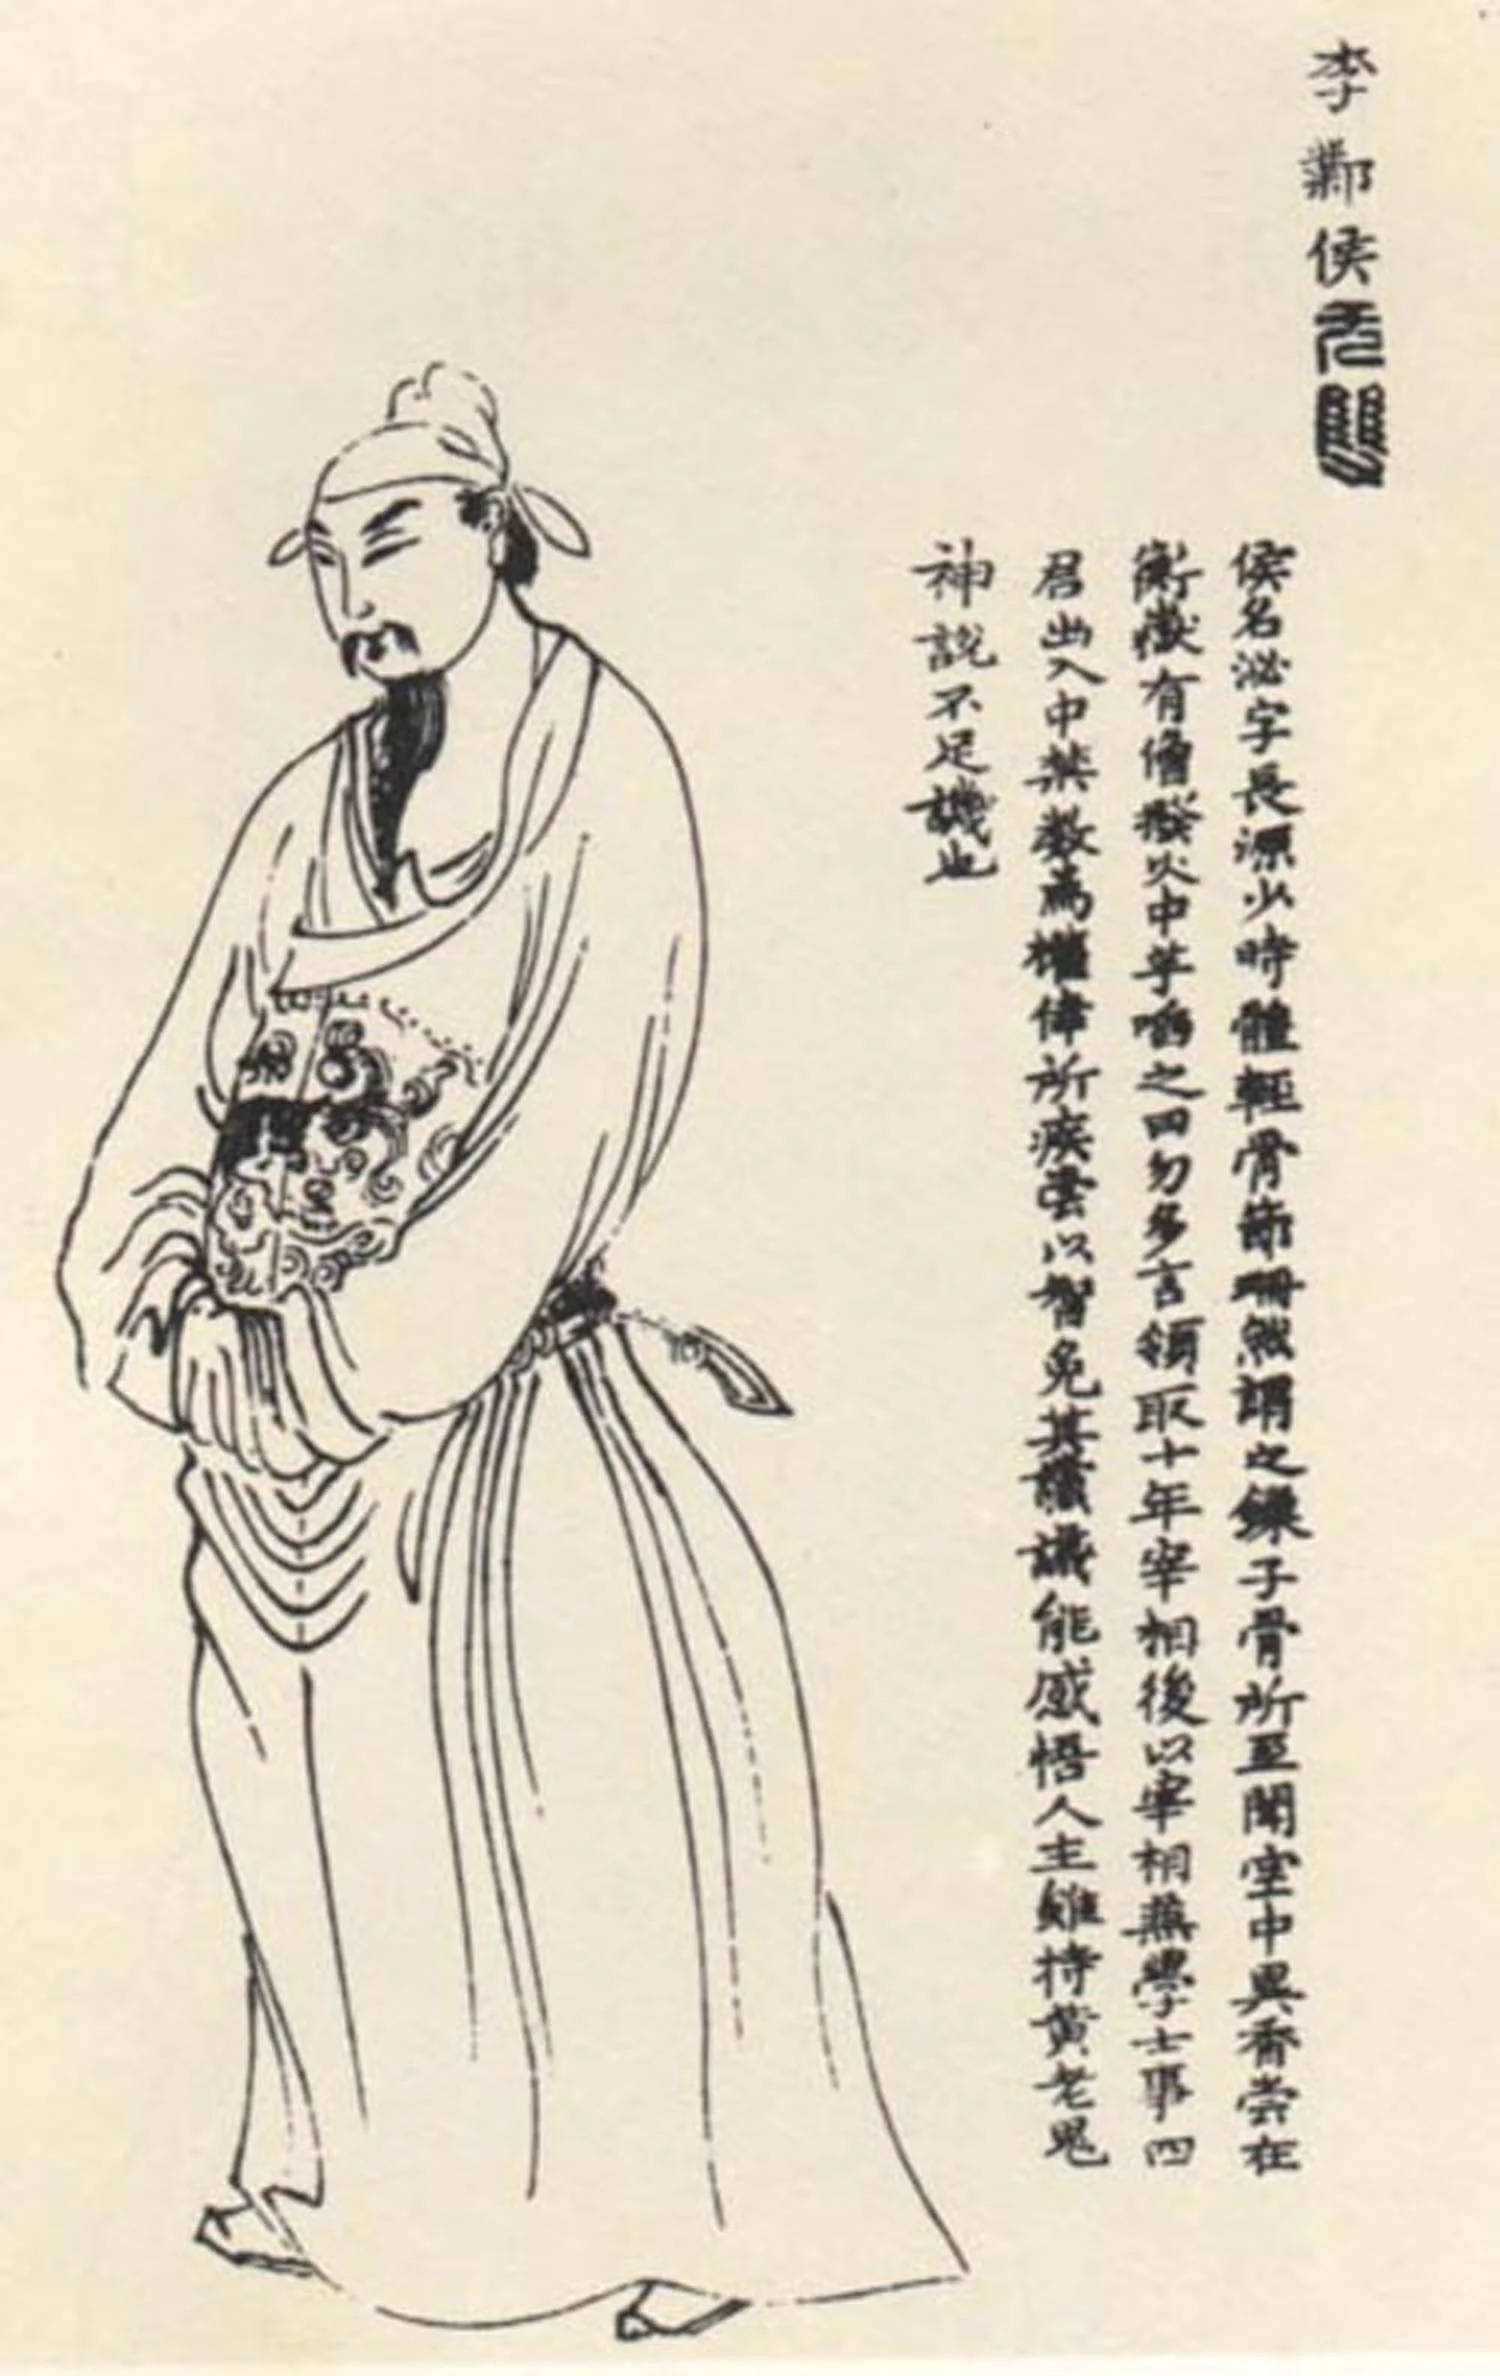 李鄴侯
侯名泌字長源少時體輕骨節珊然謂之鎖子骨所至闇室中異香嘗在
衡嶽有僧撥火中芋啗之曰勿多言領取十年宰相後以宰相兼學士事四
君出入中禁數為權倖所疾嘗以智免其讜議能感悟人主雖持黃老鬼
神說不足譏也